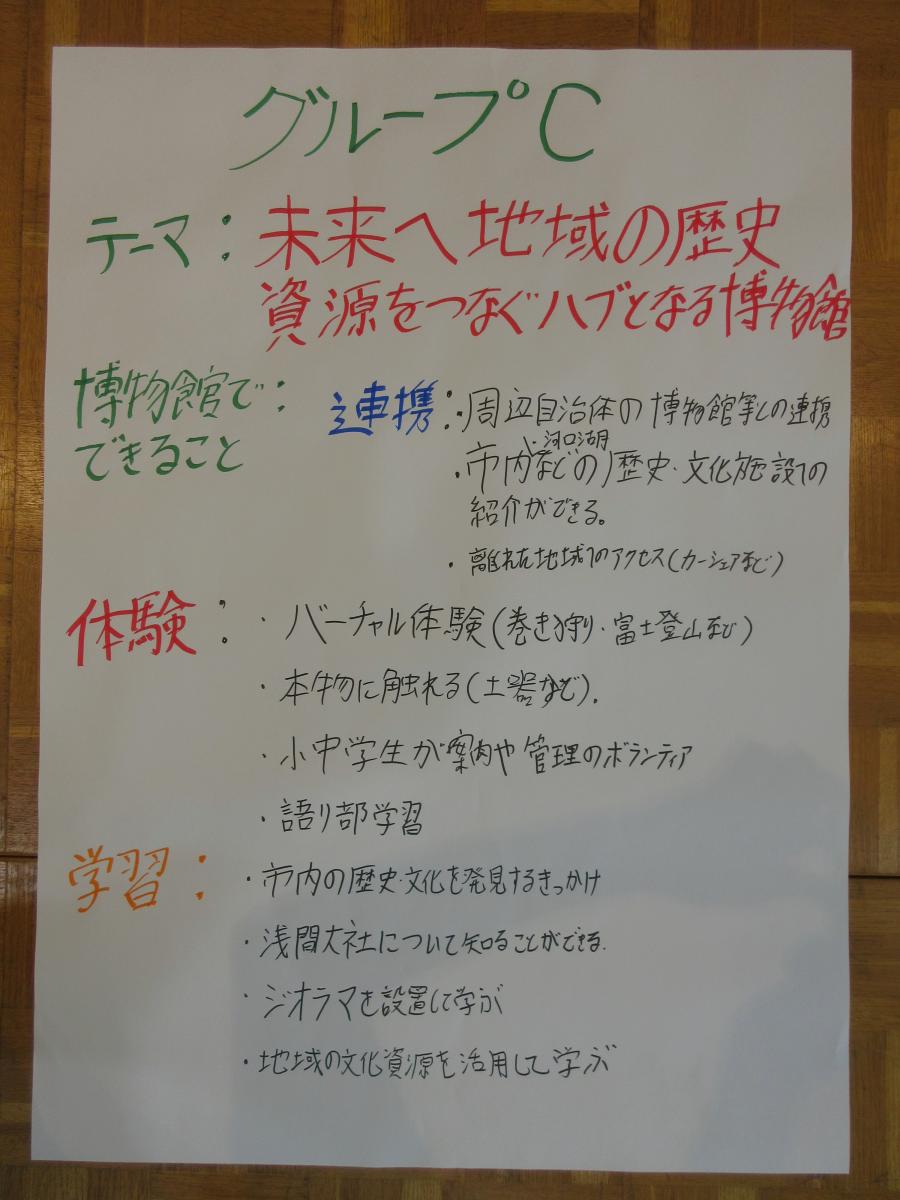 グループC
テーマ：未来へ地域の歴史
資源をつなぐハブとなる博物館
博物館で：
できること
連携：・周辺自治体の博物館等との連携
河口湖
・市内などの歴史・文化施設への
紹介ができる。
・離れた地域へのアクセス(カーシェアなど)
体験：・バーチャル体験(巻き狩り・富士登山など)
・本物に触れる(土器など).
・小中学生が案内や管理のボランティア
・語り部学習
学習：・市内の歴史・文化を発見するきっかけ
・浅間大社について知ることができる.
・ジオラマを設置して学ぶ
・地域の文化資源を活用して学ぶ